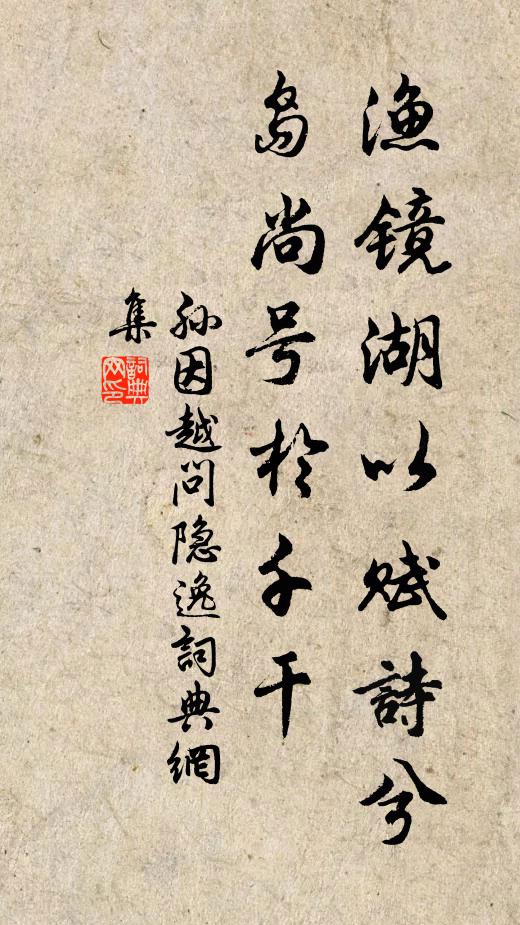 漁鏡湖以赋詩兮
島尚号於千干
孙因越问隐逸詞典網
集
詞典网印